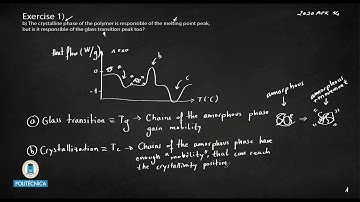 Exercise 1)
b) The crystalline phase of the polymer is responsible of the melting point peak,
but is it responsible of the glass transition peak too?
2020 APR 14
Heat flow (W/g)
↑ exo
b
0
a
-1
c
T (°C)
amorphous
amorphous
ⓐ Glass transition = Tg → Chains of the amorphous phase
gain mobility
ⓑ Crystallization = Tc → Chains of the amorphous phase have
enough "mobility", that can reach
the crystallivity position.
POLITÉCNICA
1